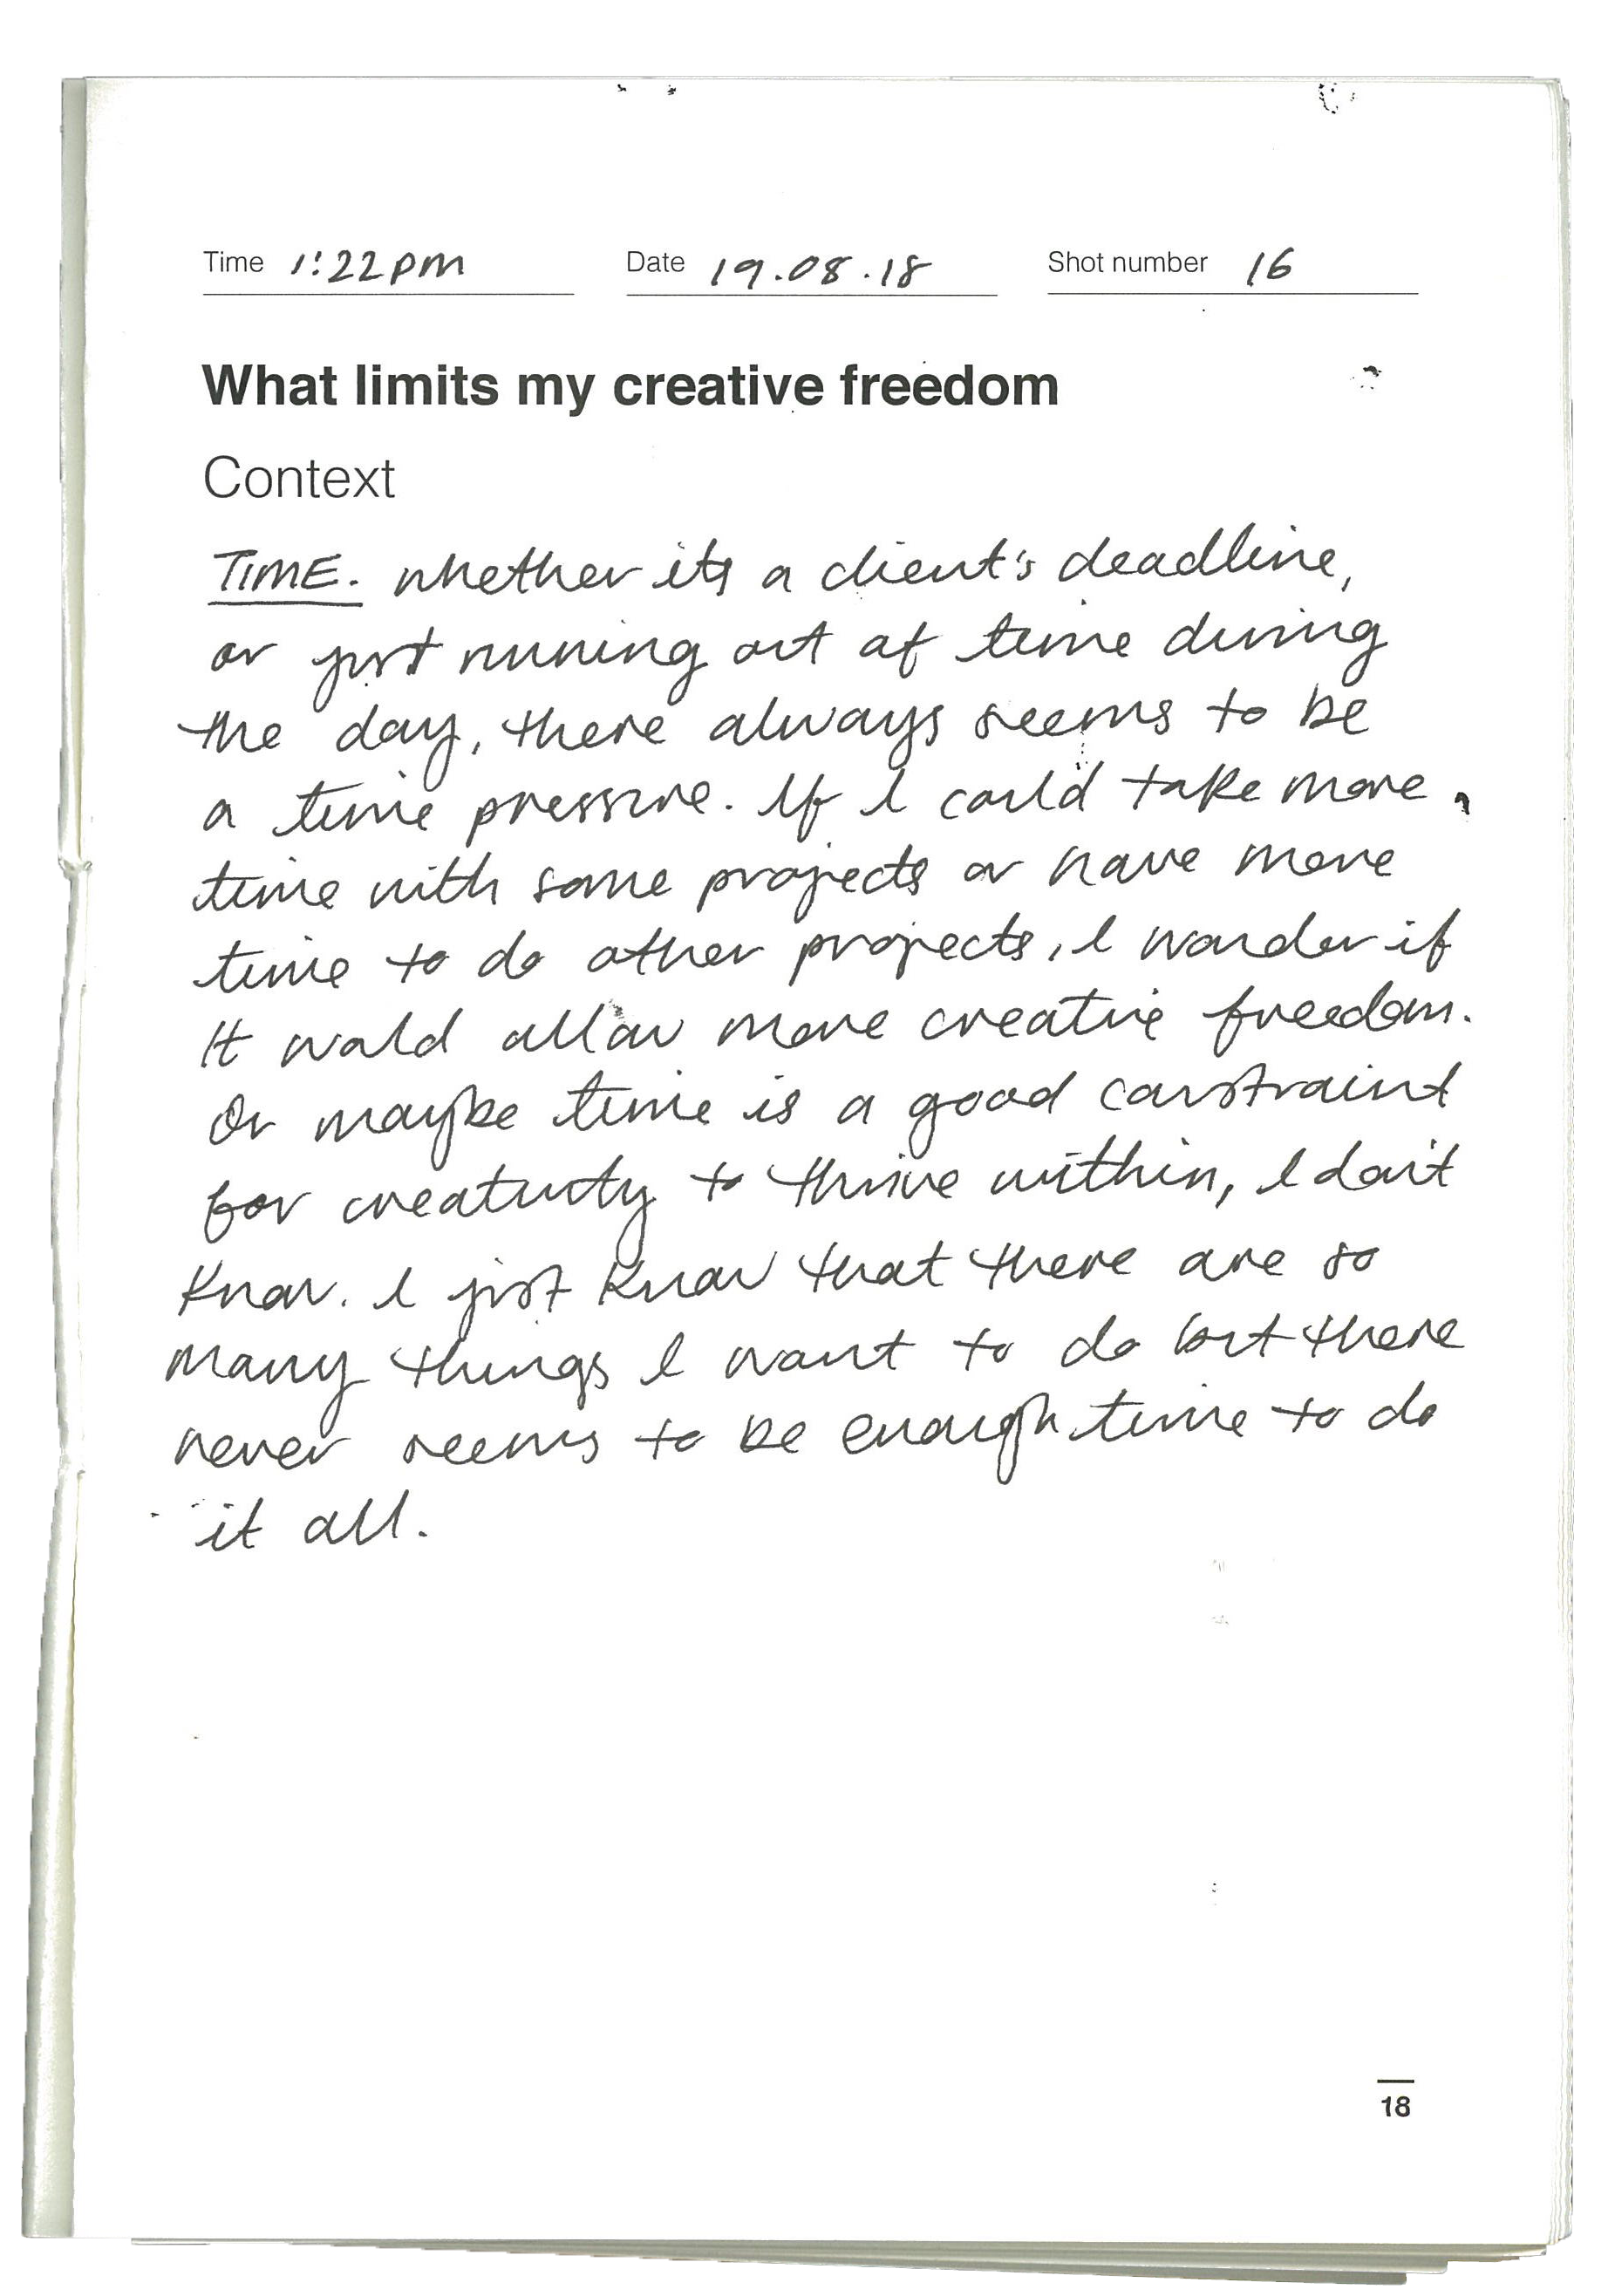 Time 1:22PM Date 19.08.18 Shot number 16
What limits my creative freedom
Context
TIME. whether its a client's deadline,
or just running out of time during
the day, there always seems to be
a time pressure. If I could take more
time with some projects or have more
time to do other projects, I wonder if
It would allow more creative freedom.
Or maybe time is a good constraint
for creativity to thrive within, I don't
know. I just know that there are so
many things I want to do but there
never seems to be enough time to do
it all.
18